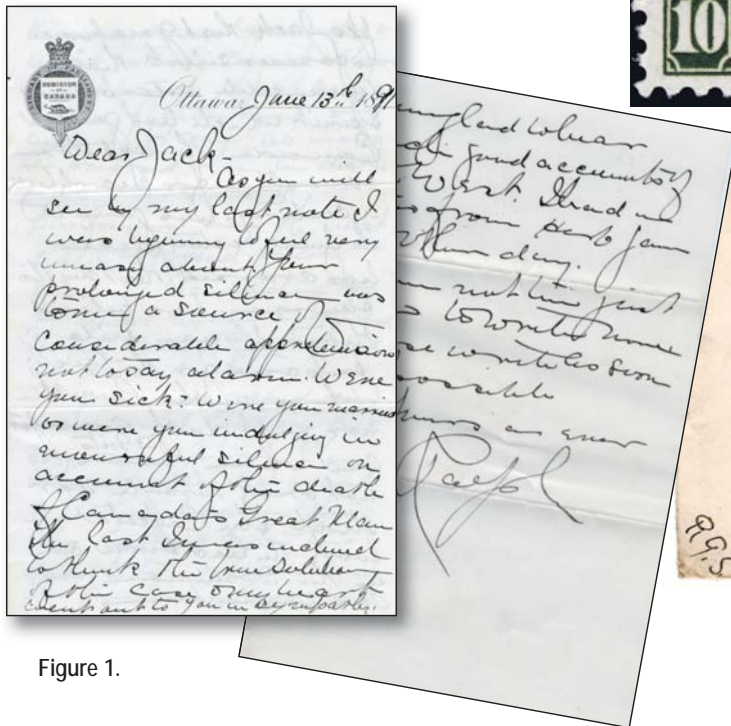 10
LIBRARY OF PARLIAMENT
DOMINION
OF
CANADA
Ottawa June 13th 1891
Dear Jack -
As you will
see by my last note I
was beginning to feel very
uneasy about you
prolonged silence was
to me a source of
considerable apprehension
not to say alarm. Were
you sick? Were you married
or were you indulging in
mournful silence on
account of the death
of Canada's Great Man
the last I was inclined
to think the true solution
of the case & my heart
went out to you in sympathy.
good accounts of
West.
from Herb
day.
not time just
to write more
write as soon
possible
as ever
Ralph
R.G.S.
Figure 1.